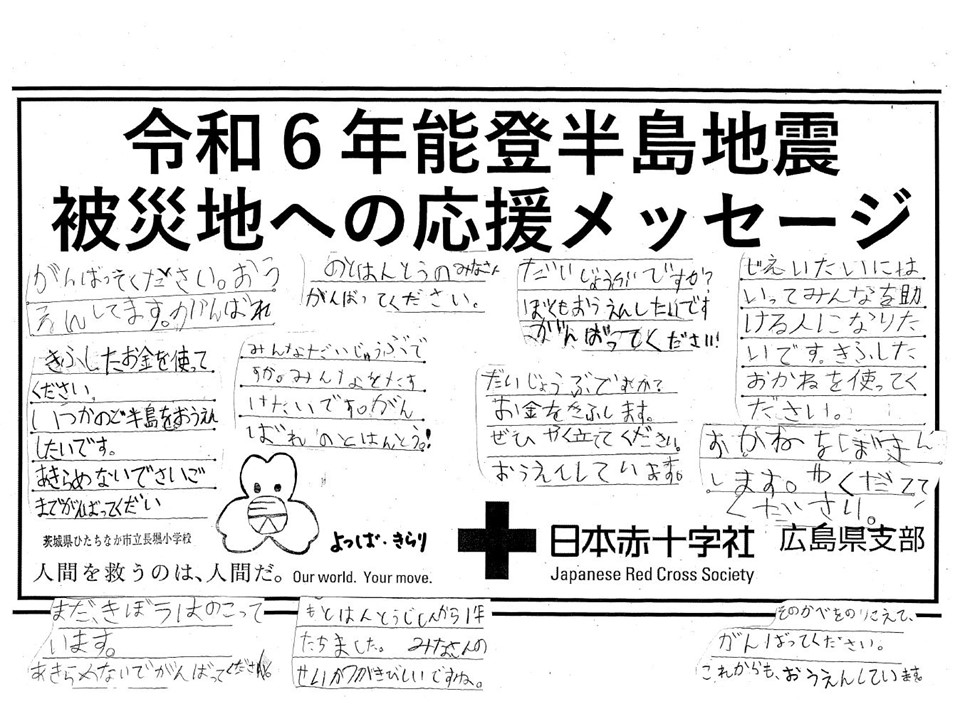 令和6年能登半島地震
被災地への応援メッセージ
がんばってください。おう
えんしてます。がんばれ
のとはんとうのみなさん
がんばってください。
だいじょうぶですか?
ぼくもおうえんしたいです
がんばってください!
じえいたいには
いってみんなを助
ける人になりた
いです。きふした
おかねを使ってく
ださい。
きふしたお金を使って
ください。
いつかのと半島をおうえん
したいです。
あきらめないでさいご
までがんばってください
みんなだいじょうぶで
すか。みんなをたす
けたいです。がん
ばれ のとはんとう。!
だいじょうぶですか?
お金をきふします。
ぜひやく立てください。
おうえんしています。
おかねをぼきん
します。やくだてて
ください。
茨城県ひたちなか市立長堀小学校
よつば・きらり
人間を救うのは、人間だ。 Our world. Your move.
日本赤十字社 広島県支部
Japanese Red Cross Society
まだ、きぼうはのこって
います。
あきらめないでがんばってください。
のとはんとうじしんから1年
たちました。 みなさんの
せいかつがきびしいですね。
そのかべをのりこえて、
がんばってください。
これからも、おうえんしています。